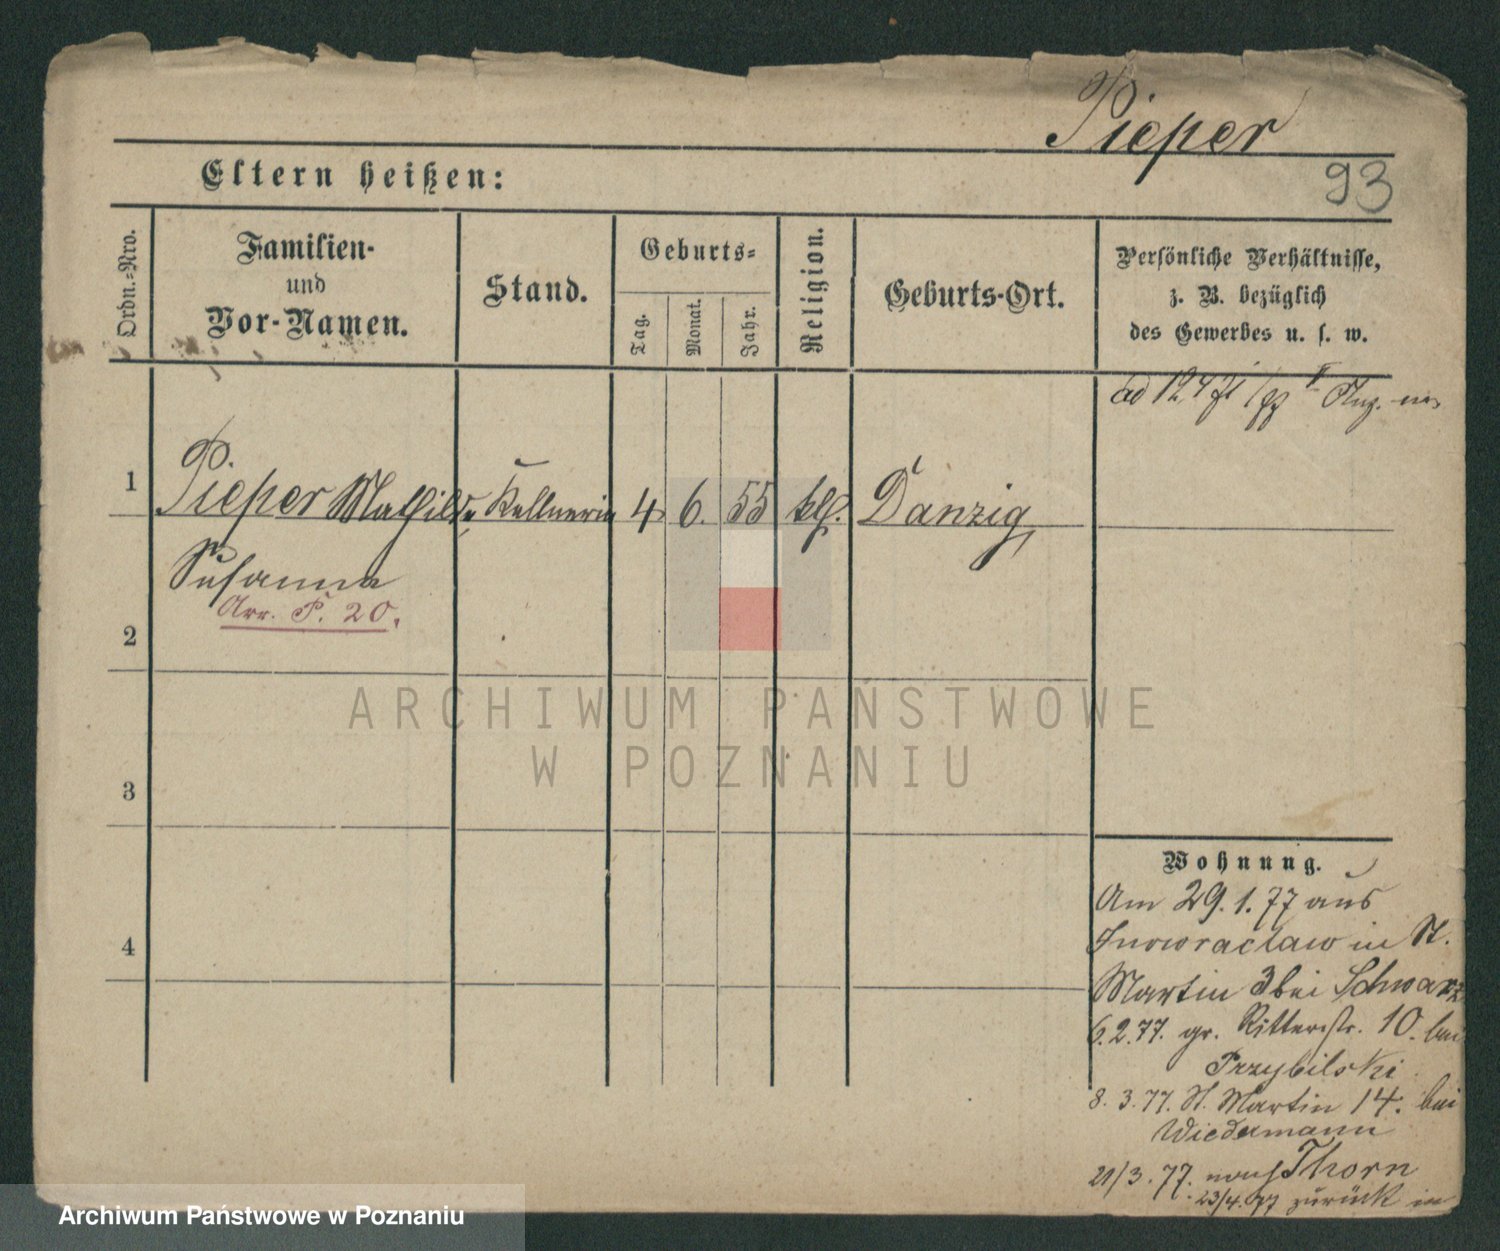 Pieper
93
Eltern heißen:
Ordn.-Nro.
Familien-
und
Vor-Namen.
Stand.
Geburts-
Tag.
Monat.
Jahr.
Religion.
Geburts-Ort.
Persönliche Verhältnisse,
z. B. bezüglich
des Gewerbes u. s. w.
ad
1 Pieper Mathilde Kellnerin 4 6. 55 kth. Danzig
Susanna
Arr. P. 20.
2
3
4
Wohnung.
Am 29.1.77 aus
Inowraclaw in St.
Martin 3 bei Schwarz
6.2.77. gr. Ritterstr. 10. bei
Przybilski
8.3.77. St. Martin 14. bei
Wiedermann
21/3.77. nach Thorn
23/4.77 zurück in
ARCHIWUM PAŃSTWOWE
W POZNANIU
Archiwum Państwowe w Poznaniu